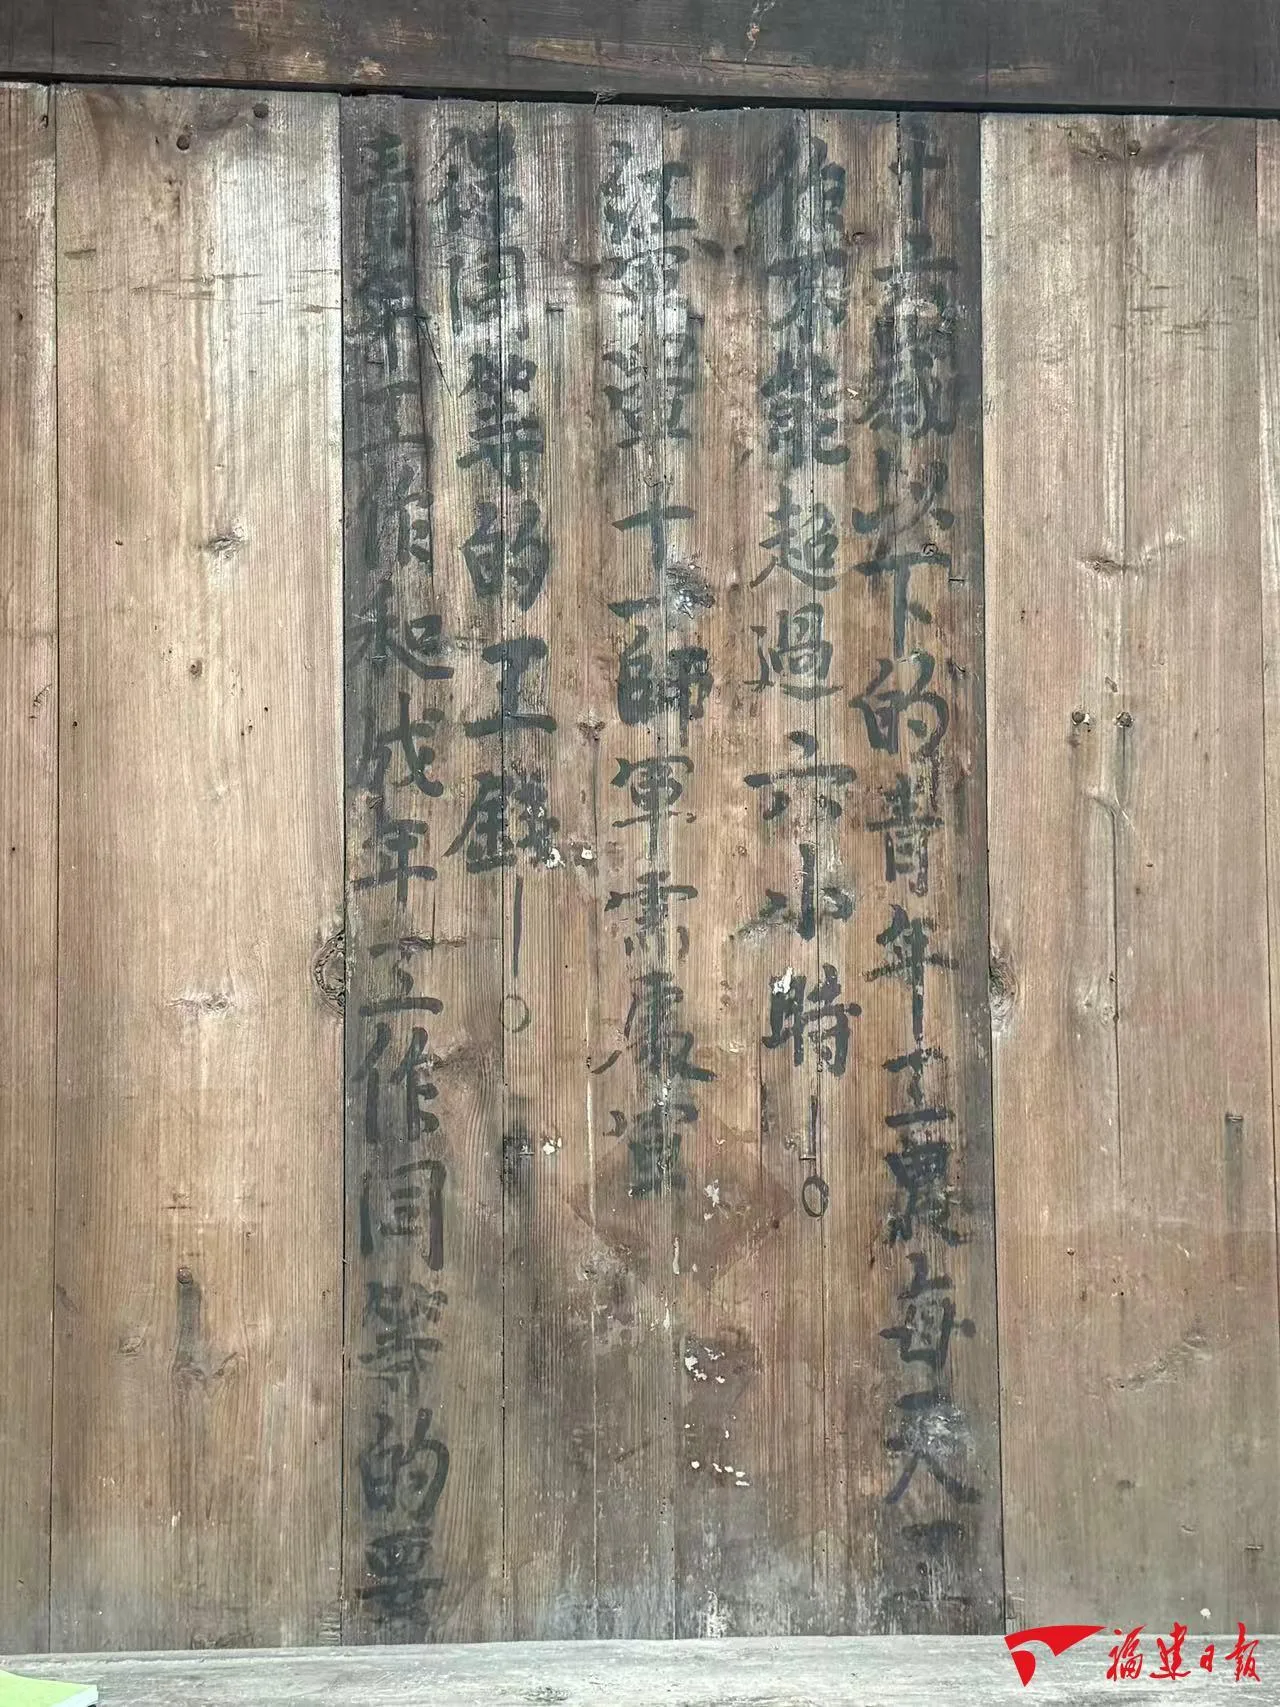 十六歲以下的青年工農每天工
作不能超過六小時!。
紅軍十一師軍需處宣
青年工作和成年工作同等的要
得同等的工錢!。
福建日报